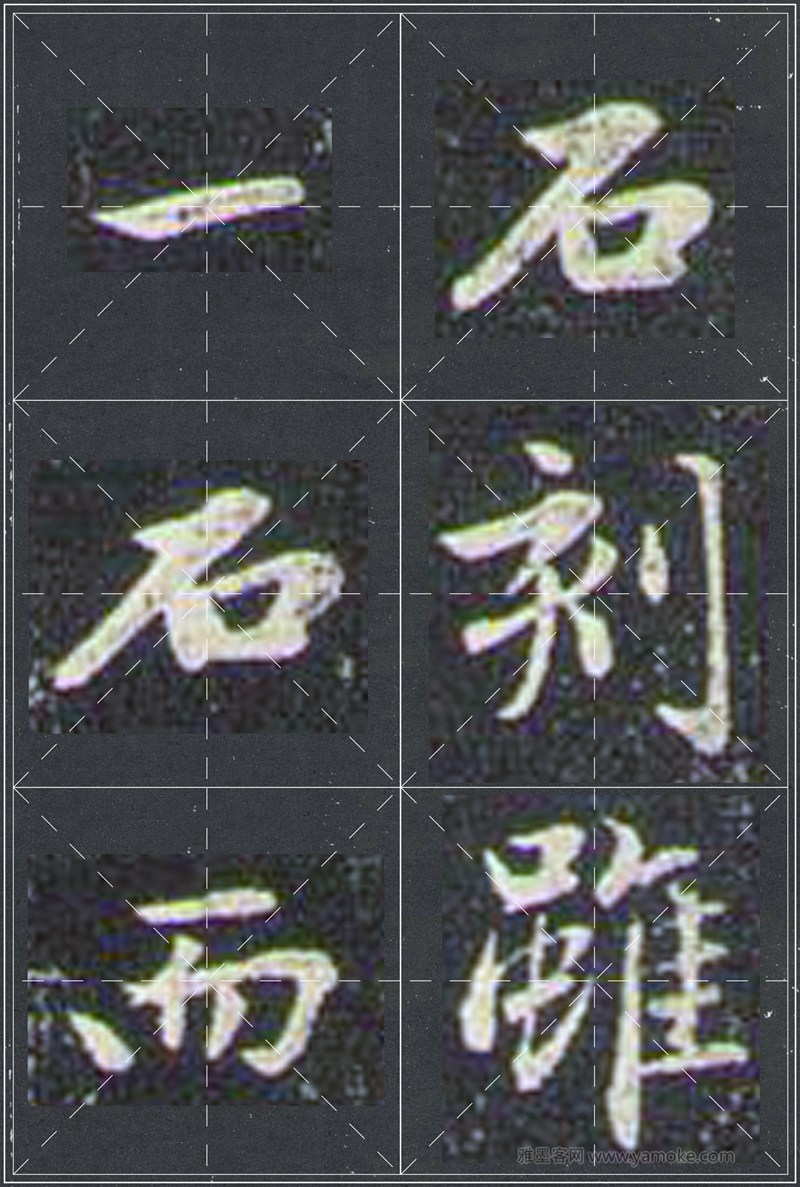 一石
石刻
而雖
雅墨客网 www.yamoke.com